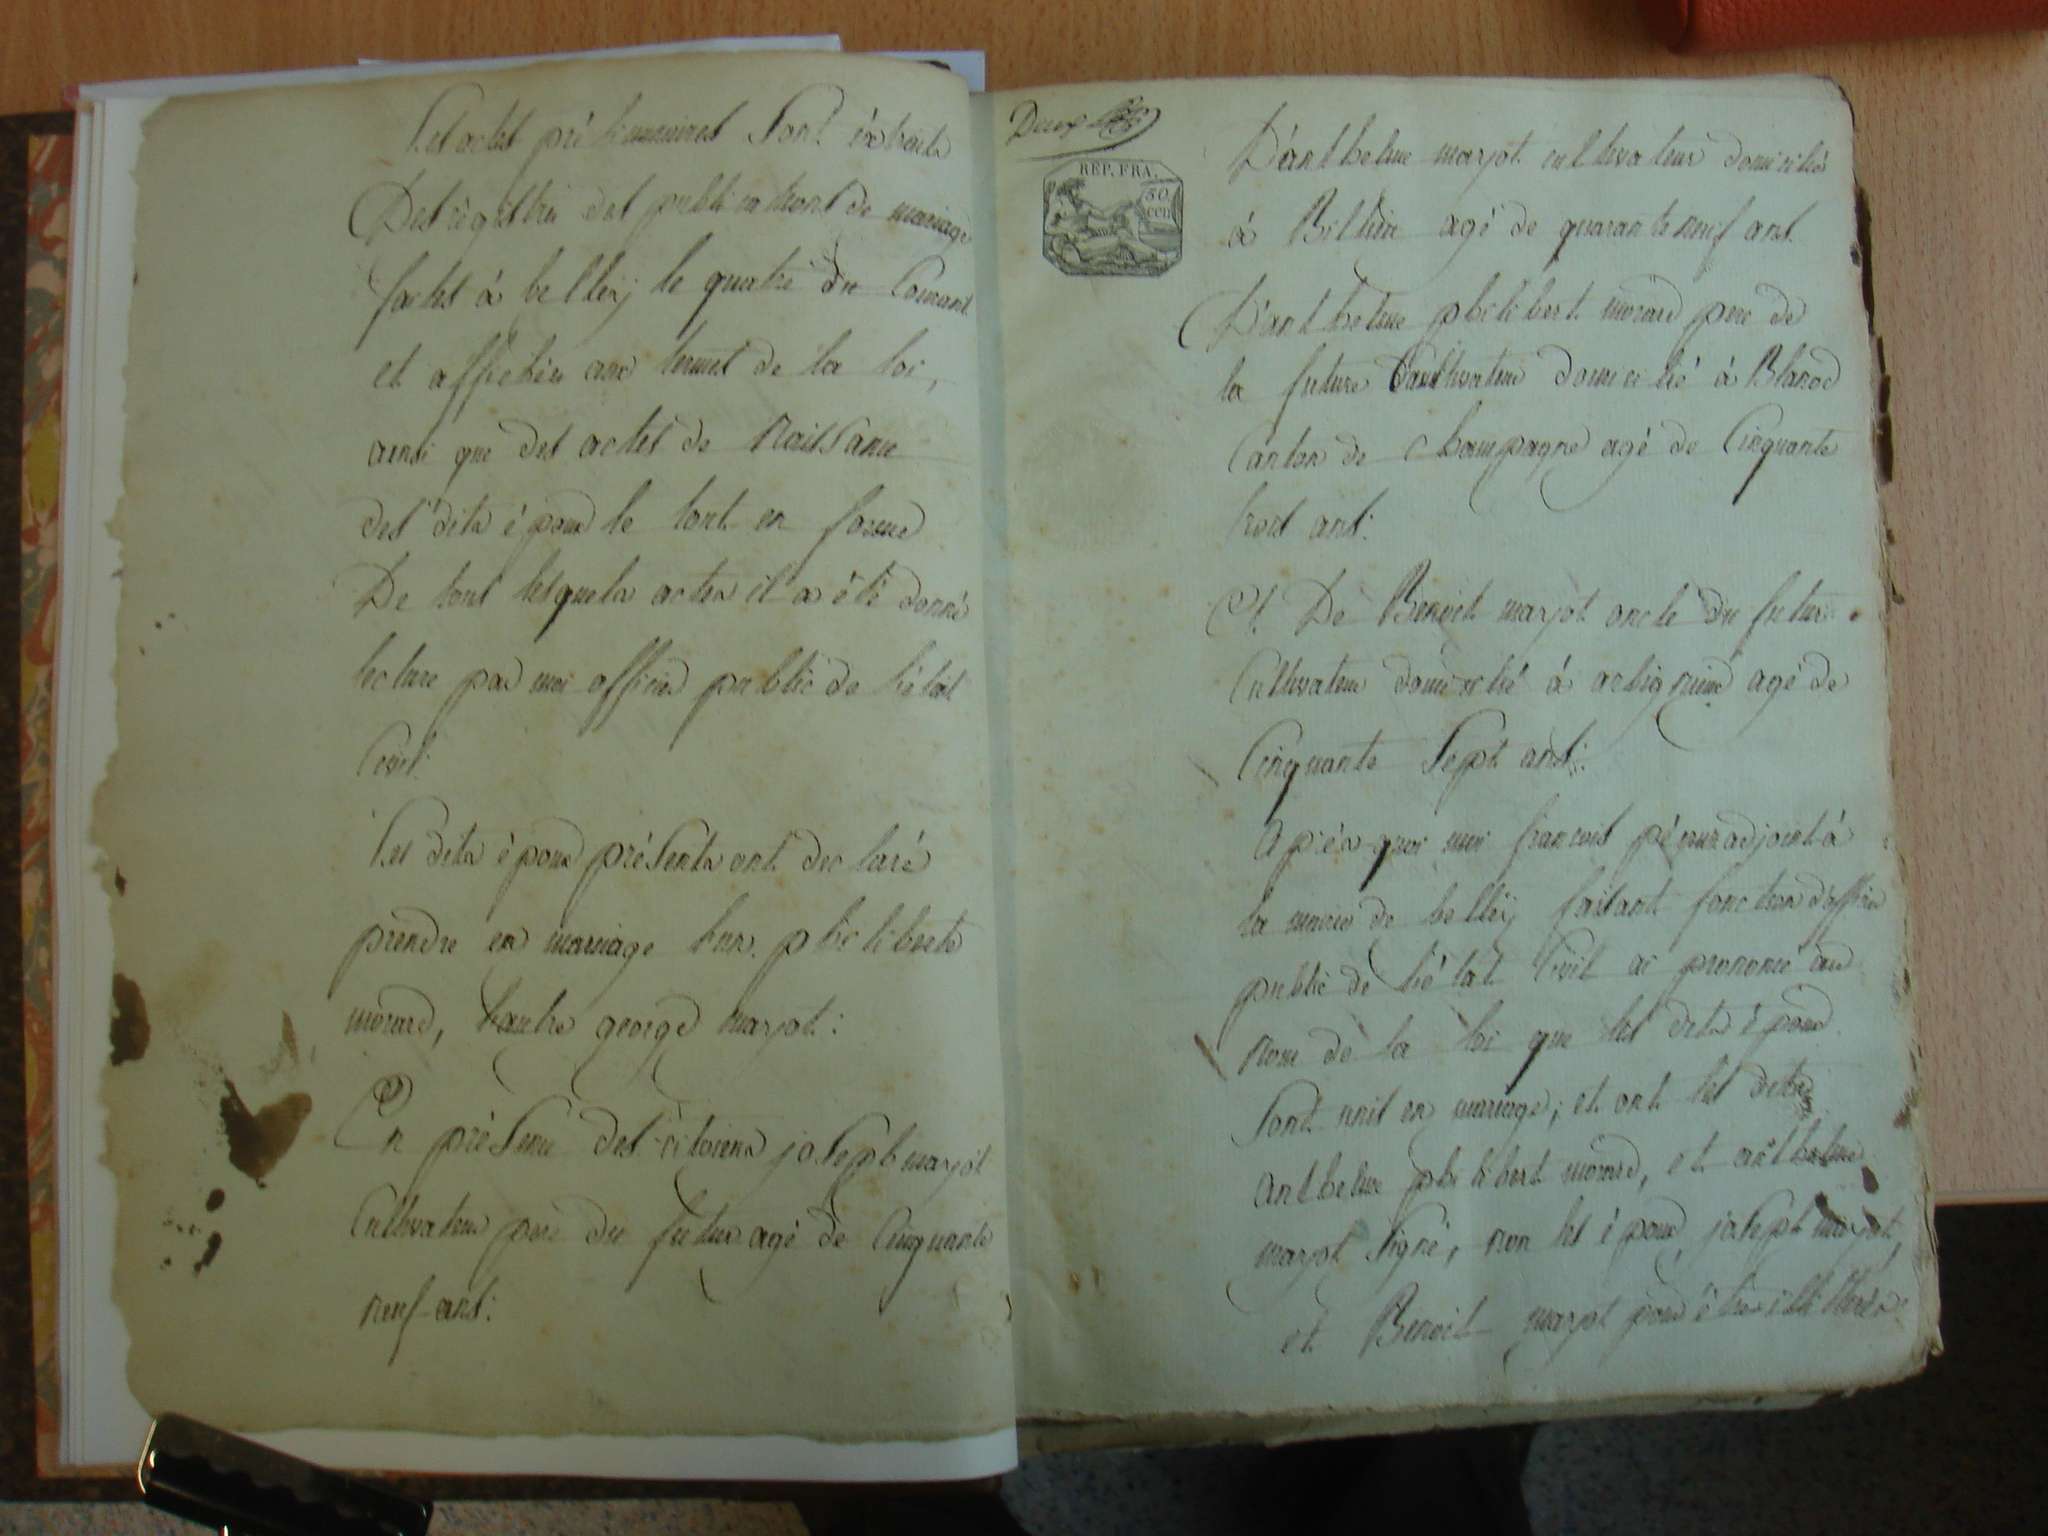 Les actes préliminaires sont éxtraits
Des régistres des publications de mariage
faites à belleÿ le quatre du Courant
et affichés aux termes de la loi,
ainsi que des actes de Naissance
des dits époux le tout en forme
De tous lesquels actes il a été donné
lecture par moi officier public de l'état
Civil.
Les dits époux présents ont déclaré
prendre en mariage l'un philiberte
morard, l'autre george marjot:
En présence des citoiens joseph marjot
Cultivateur pere du futur agé de Cinquante
neuf ans:
Deux
REP. FRA.
50
cen
D'anthelme marjot cultivateur domicilié
à Billieu agé de quarante neuf ans
D'anthelme philibert morard pere de
la future Cultivateur domicilié à
Canton de Champagne agé de Cinquante
trois ans:
Et De Benoit marjot oncle du futur
Cultivateur domicilié à agé de
Cinquante Sept ans:
Après quoi moi francois adjoint à
la mairie de belleÿ faisant fonction d'officier
public de l'état Civil ai prononcé au
nom de la loi que les dits époux
Sont unis en mariage; et ont les dits
anthelme philibert morard, et anthelme
marjot Signé, non les époux, joseph marjot,
et Benoit marjot pour être illitérés